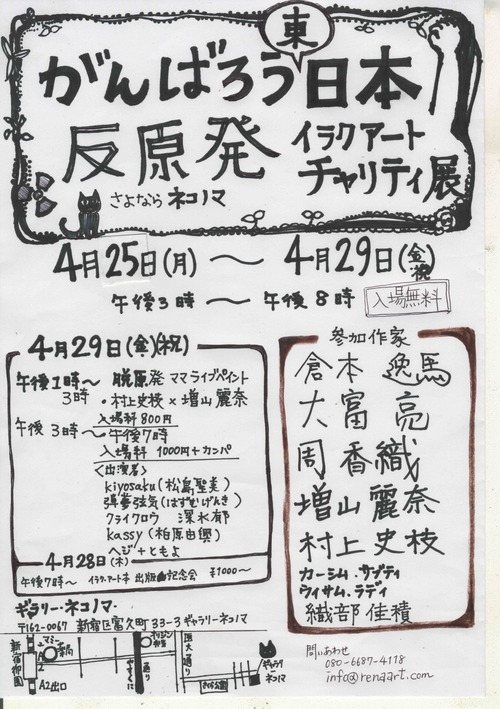 がんばろう東日本
反原発
イラクアート
チャリティ展
さよなら ネコノマ
4月25日(月)〜4月29日(金祝)
午後3時〜午後8時 入場無料
4月29日(金)(祝)
午後1時〜3時 脱原発ママライブペイント
・村上史枝×増山麗奈
入場料800円
午後3時〜午後7時
入場料 1000円+カンパ
<出演者>
kiyosaku(松島聖美)
弾夢弦気(はずむげんき)
クライクロウ 深水郁
kassy(柏原由興)
ヘジ+ともよ
4月28日(木)
午後7時〜 イラク・アート本 出版記念会 ¥1000〜
参加作家
倉本 逸馬
大富 亮
周 香織
増山 麗奈
村上 史枝
カーシム・サブティ
ウィサム・ラディ
織部 佳積
ギャラリー・ネコノマ・
〒162-0067 新宿区富久町33-3ギャラリーネコノマ
新宿御苑
A2出口
やすくに
通り
ギャラリー
ネコノマ
問いあわせ
080-6687-4118
info@renaart.com